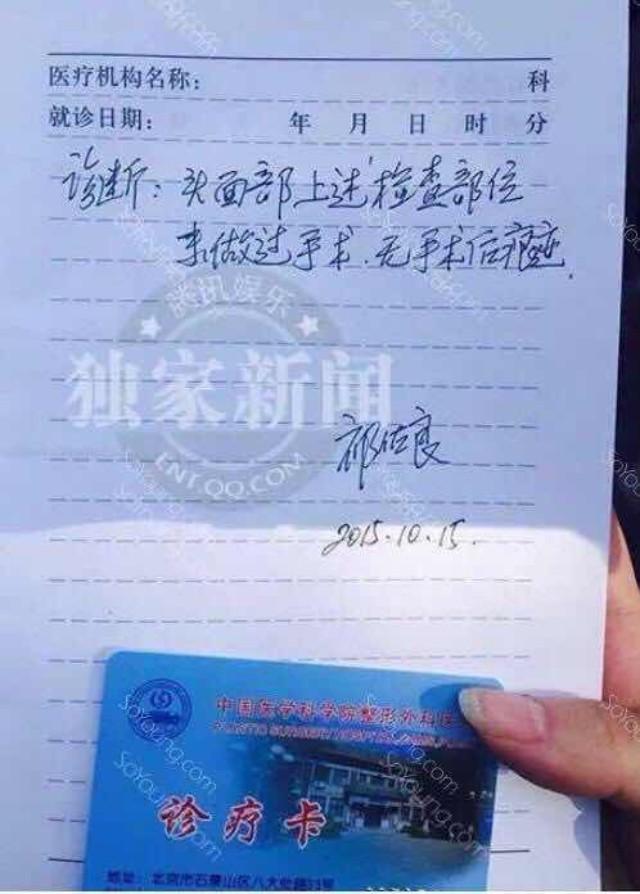 医疗机构名称： 科
就诊日期： 年 月 日 时 分
诊断：头面部上述检查部位
未做过手术.无手术后痕迹.
腾讯娱乐
独家新闻
ENT.QQ.COM
祁佐良
2015.10.15.
中国医学科学院整形外科医
PLASTIC SURGERY HOSPITAL
诊疗卡
地址：北京市石景山区八大处路33号
SoYoung.com